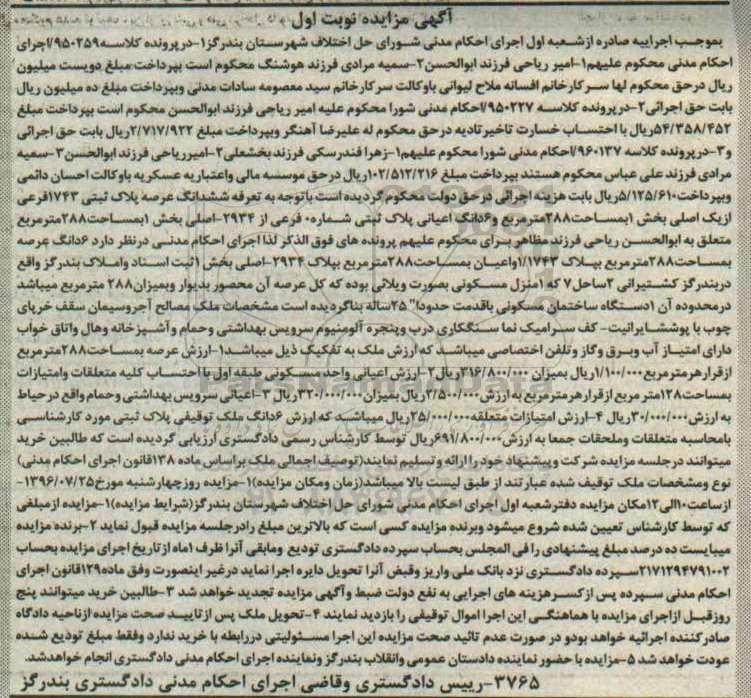 آگهی مزایده نوبت اول
بموجب اجراییه صادره ازشعبه اول اجرای احکام مدنی شورای حل اختلاف شهرستان بندرگز۱-درپرونده کلاسه۹۵۰۲۵۹/اجرای
احکام مدنی محکوم علیهم۱-امیر ریاحی فرزند ابوالحسن۲-سمیه مرادی فرزند هوشنگ محکوم است بپرداخت مبلغ دویست میلیون
ریال درحق محکوم لها سرکارخانم افسانه ملاح لیوانی باوکالت سرکارخانم سید معصومه سادات مدنی وبپرداخت مبلغ ده میلیون ریال
بابت حق اجرائی۲-درپرونده کلاسه ۹۵۰۲۲۷/احکام مدنی شورا محکوم علیه امیر ریاحی فرزند ابوالحسن محکوم است بپرداخت مبلغ
۵۴/۳۵۸/۴۵۲ریال با احتساب خسارت تاخیرتادیه درحق محکوم له علیرضا آهنگر وبپرداخت مبلغ ۲/۷۱۷/۹۲۲ریال بابت حق اجرائی
و۳-درپرونده کلاسه ۹۶۰۱۳۷/احکام مدنی شورا محکوم علیهم۱-زهرا فندرسکی فرزند بخشعلی۲-امیرریاحی فرزند ابوالحسن۳-سمیه
مرادی فرزند علی عباس محکوم هستند بپرداخت مبلغ ۱۰۲/۵۱۲/۲۱۶ریال درحق موسسه مالی واعتباریه عسکریه باوکالت احسان دائمی
وبپرداخت۵/۱۲۵/۶۱۰ریال بابت هزینه اجرائی درحق دولت محکوم گردیده است باتوجه به تعرفه ششدانگ عرصه پلاک ثبتی ۱۷۴۳فرعی
ازیک اصلی بخش ۱بمساحت۲۸۸مترمربع و۶دانگ اعیانی پلاک ثبتی شماره۰ فرعی از ۲۹۳۴-اصلی بخش ۱بمساحت۲۸۸مترمربع
متعلق به ابوالحسن ریاحی فرزند مظاهر برای محکوم علیهم پرونده های فوق الذکر لذا اجرای احکام مدنی درنظر دارد ۶دانگ عرصه
بمساحت۲۸۸متر مربع بپلاک ۱/۱۷۴۳واعیان بمساحت۲۸۸مترمربع بپلاک ۲۹۳۴-اصلی بخش ۱ثبت اسناد واملاک بندرگز واقع
دربندرگز کشتیرانی ۲ساحل۷ که ۱منزل مسکونی بصورت ویلائی بوده که کل عرصه آن محصور بدیوار وبمیزان۲۸۸ مترمربع میباشد
درمحدوده آن ۱دستگاه ساختمان مسکونی باقدمت حدودا" ۲۵ساله بناگردیده است مشخصات ملک مصالح آجروسیمان سقف خرپای
چوب با پوششایرانیت- کف سرامیک نما سنگکاری درب وپنجره آلومنیوم سرویس بهداشتی وحمام وآشپزخانه وهال واتاق خواب
دارای امتیاز آب وبرق وگاز وتلفن اختصاصی میباشد که ارزش ملک به تفکیک ذیل میباشد۱-ارزش عرصه بمساحت۲۸۸مترمربع
ازقرارهرمترمربع۱/۱۰۰/۰۰۰ریال بمیزان ۳۱۶/۸۰۰/۰۰۰ریال۲-ارزش اعیانی واحد مسکونی طبقه اول با احتساب کلیه متعلقات وامتیازات
بمساحت۱۲۸متر مربع ازقرارهرمترمربع به ارزش۲/۵۰۰/۰۰۰ریال بمیزان۳۲۰/۰۰۰/۰۰۰ریال ۳-اعیانی سرویس بهداشتی وحمام واقع درحیاط
به ارزش۳۰/۰۰۰/۰۰۰ریال ۴-ارزش امتیازات متعلقه۲۵/۰۰۰/۰۰۰ریال میباشد که ارزش ۶دانگ ملک توقیفی پلاک ثبتی مورد کارشناسی
بامحاسبه متعلقات وملحقات جمعا به ارزش۶۹۱/۸۰۰/۰۰۰ریال توسط کارشناس رسمی دادگستری ارزیابی گردیده است که طالبین خرید
میتوانند درجلسه مزایده شرکت وپیشنهاد خود را ارائه وتسلیم نمایند(توصیف اجمالی ملک براساس ماده ۱۳۸قانون اجرای احکام مدنی)
نوع ومشخصات ملک توقیف شده عبارتند از طبق لیست بالا میباشد(زمان ومکان مزایده)۱-مزایده روزچهارشنبه مورخ۱۳۹۶/۰۷/۲۵-
ازساعت۱۰الی۱۲مکان مزایده دفترشعبه اول اجرای احکام مدنی شورای حل اختلاف شهرستان بندرگز(شرایط مزایده)۱-مزایده ازمبلغی
که توسط کارشناس تعیین شده شروع میشود وبرنده مزایده کسی است که بالاترین مبلغ رادرجلسه مزایده قبول نماید ۲-برنده مزایده
میبایست ده درصد مبلغ پیشنهادی رافی المجلس بحساب سپرده دادگستری تودیع ومابقی آنرا ظرف ۱ماه ازتاریخ اجرای مزایده بحساب
۲۱۷۱۲۹۴۷۹۱۰۰۲سپرده دادگستری نزد بانک ملی واریز وقبض آنرا تحویل دایره اجرا نماید درغیر اینصورت وفق ماده۱۲۹قانون اجرای
احکام مدنی سپرده پس ازکسرهزینه های اجرایی به نفع دولت ضبط وآگهی مزایده تجدید خواهد شد ۳-طالبین خرید میتوانند پنج
روزقبل ازاجرای مزایده با هماهنگی این اجرا اموال توقیفی را بازدید نمایند ۴-تحویل ملک پس ازتایید صحت مزایده ازناحیه دادگاه
صادرکننده اجرائیه خواهد بودو در صورت عدم تائید صحت مزایده این اجرا مسئولیتی دررابطه با خرید ندارد وفقط مبلغ تودیع شده
عودت خواهد شد ۵-مزایده با حضور نماینده دادستان عمومی وانقلاب بندرگز ونماینده اجرای احکام مدنی دادگستری انجام خواهدشد.
۳۷۶۵-رییس دادگستری وقاضی اجرای احکام مدنی دادگستری بندرگز